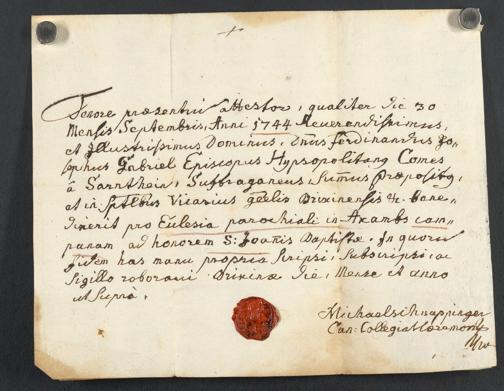 Tenore præsentiu attestor, qualiter die 30
Mensis Septembris, Anni 1744 Reverendissimus,
et Illustrissimus Dominus, Dnus Ferdinandus Jo„
sephus Gabriel Episcopus Hypsopolitanq Comes
â Sarnthein, Suffraganeus, Sumus Præpositq,
et in Spiritualibus Vicarius glis Brixinensis &c. bene„
dixerit pro Eclesia parochiali in Axambs cam„
panam ad honorem S: Joanis Baptistæ. In quoru
fidem has manu propria scripsi, subscripsi, ac
Sigillo roboravi. Brixinæ die, Mense et anno
ut supra.
Michael Schnappinger
Can: Collegiat Cæremon